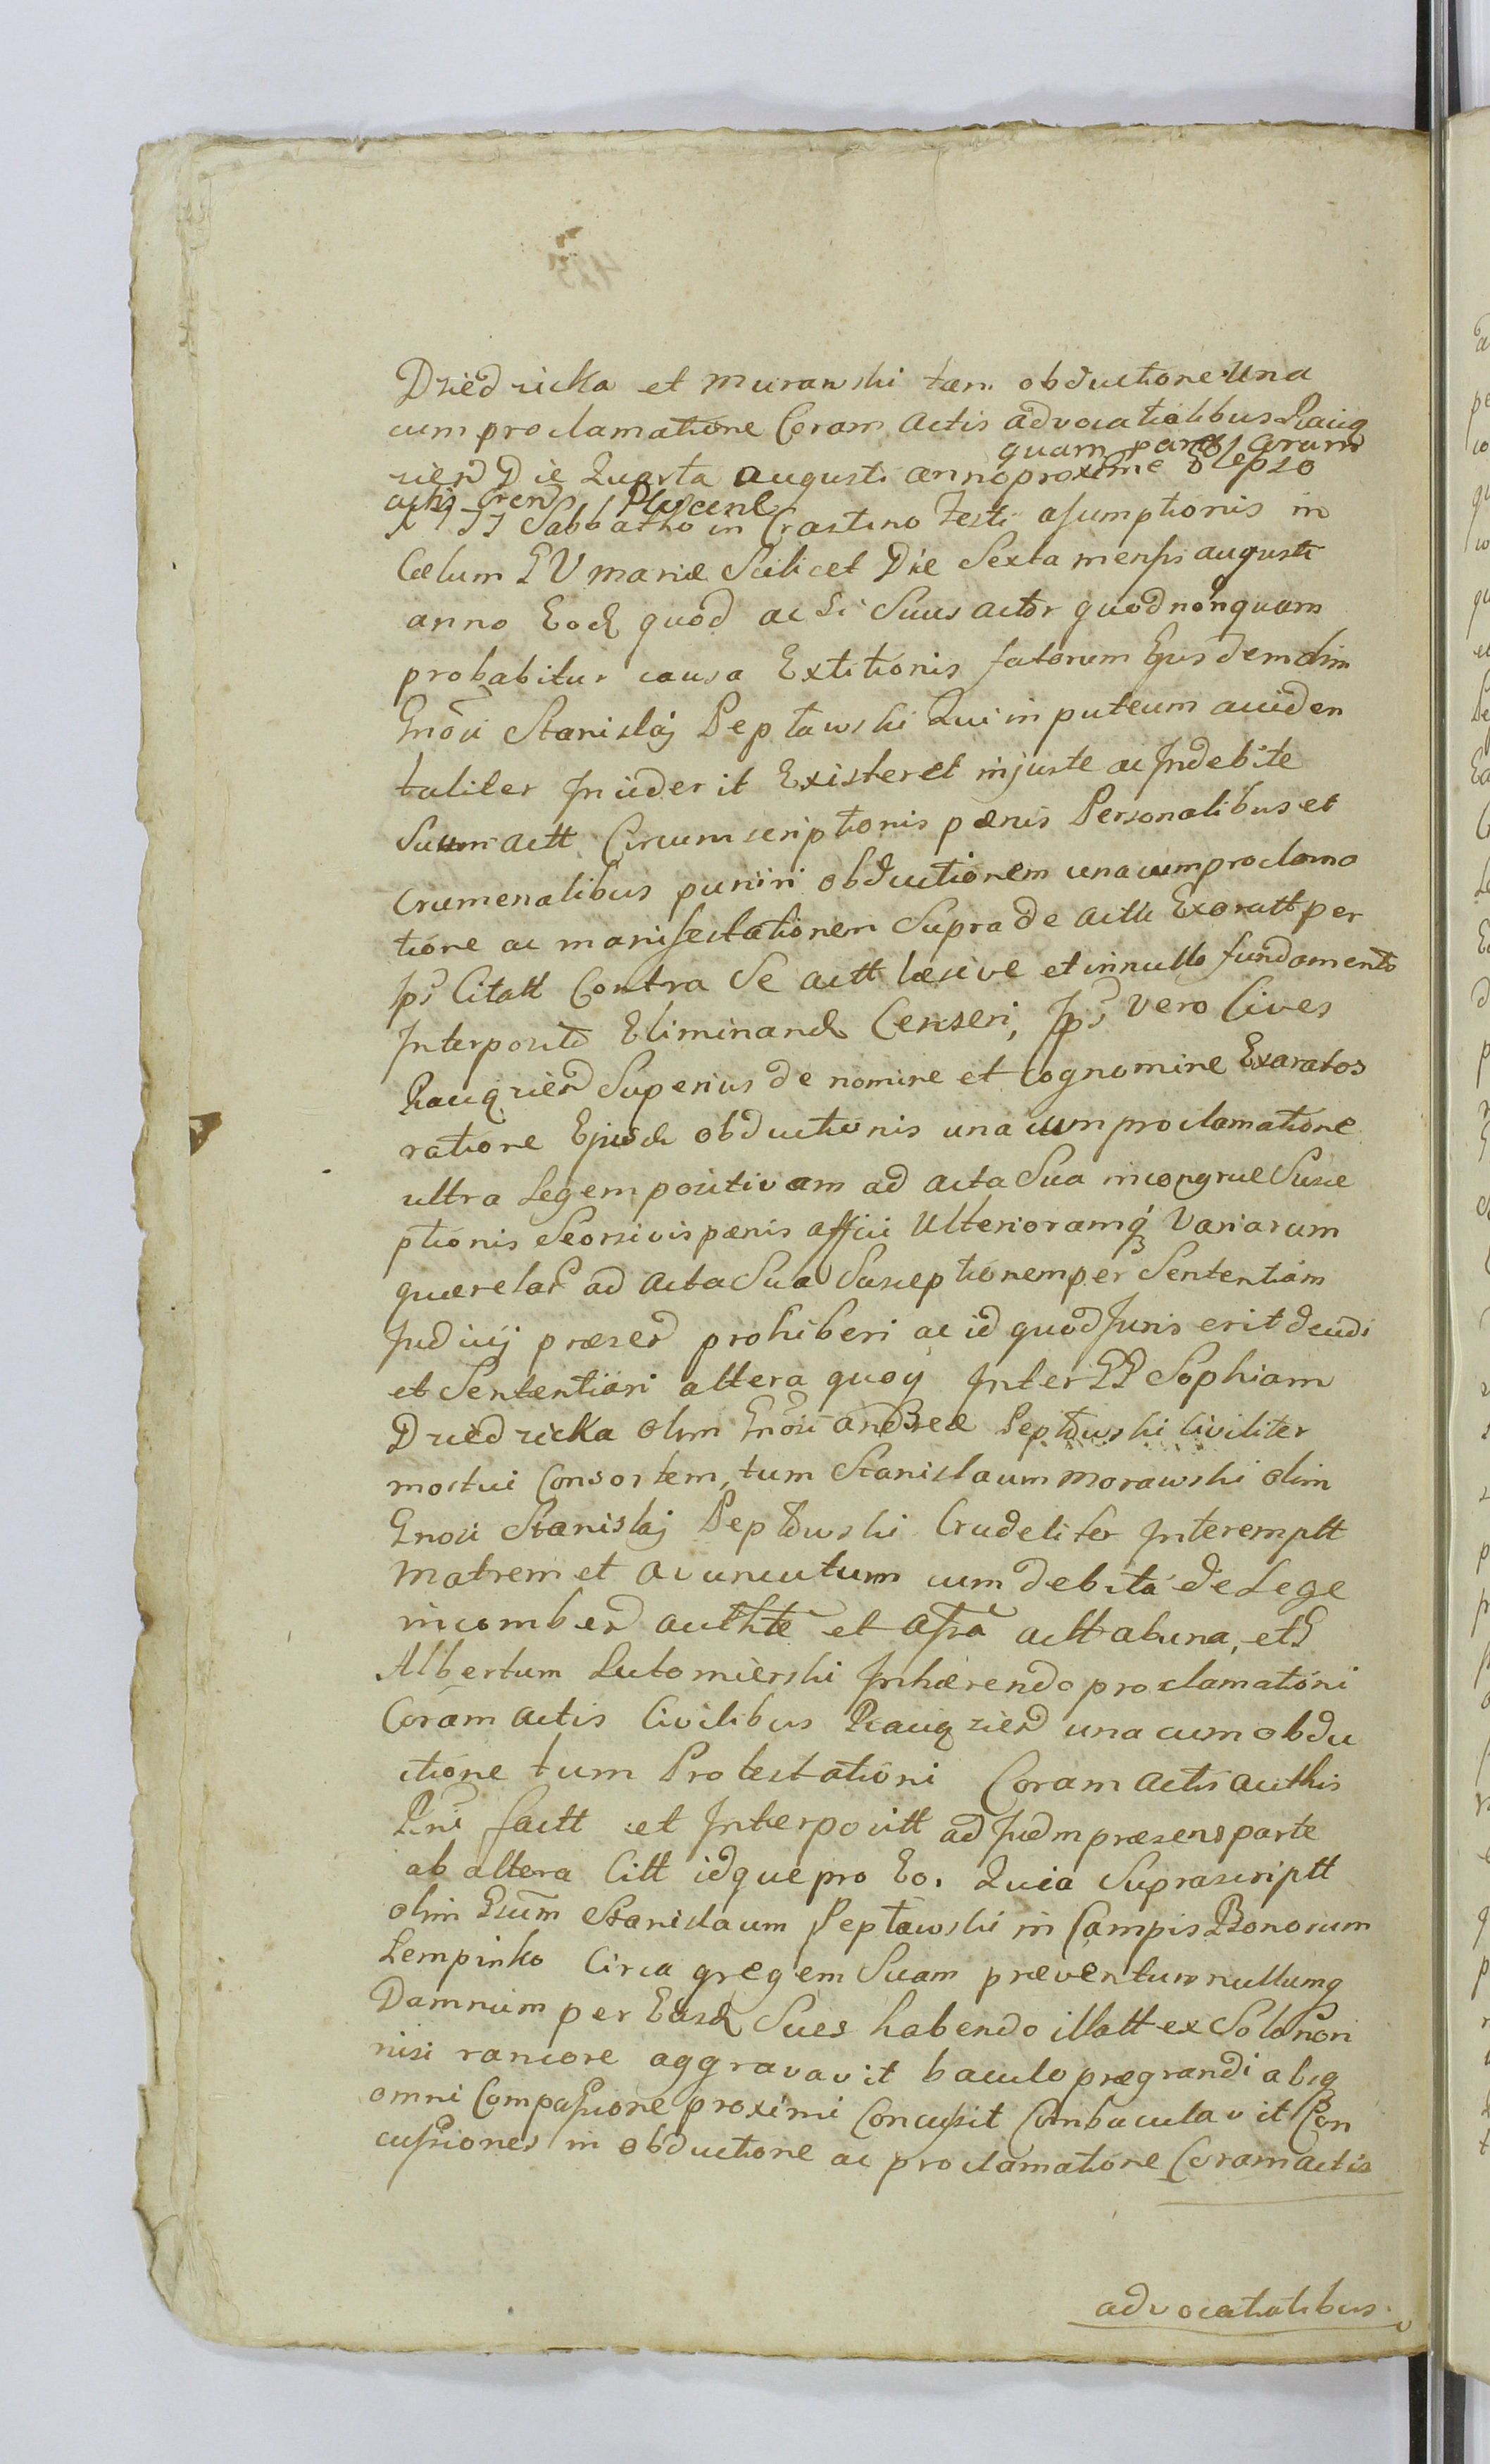 Dziedzicka et Murawski tam obductione Una
cum proclamatione Coram Actis advocatialibus Raciąz
ciend Die Quarta Augusti anno proxime elapso
quam parag Grum
actis Grend Pluscend
Sabbatho in Crastino Festi asumptionis in
Cœlum BV Mariæ Scilicet Die Sexta mensis augusti
anno Eod quod ac Si Suus actor quod nonquam
probabitur causa Extitionis fatorum Ejusdem olim
Gnosi Stanislaj Peptawski Qui in puteum acciden
taliter Inciderit Existeret injuste ac Indebite
Suum actt Circumscriptionis pænis Personalibus et
Crumenalibus puniri obductionem una cum proclama
tione ac manifestationem Supra de actu Exoratt per
Ips Citatt Contra Se actt læsive et in nullo fundamento
Interposito Eliminand Censeri, Ips vero Cives
Raciąziend Superius de nomine et cognomine Exaratos
ratione Ejusd obductionis una cum proclamatione
ultra Legem positivam ad acta Sua incongrue Susce
ptionis Seorsivis pænis affici Ulterioramq Variarum
quærelar ad acta Sua Susceptionem per Sententiam
Judicij præsend prohiberi ac id quod Juris erit decidi
et Sententiari altera quoq Inter GG Sophiam
Dziedzicka olim Gnosi Andreæ Peptowski Civiliter
mortui Consortem, tum Stanislaum Morawski olim
Gnosi Stanislaj Peptowski Crudeliter Interemptt
Matrem et avunculum cum debita de Lege
incombend authte et assa actt ab una, et G
Albertum Lutomierski Inhærendo proclamationi
Coram actis Civilibus Raciąziend una cum obdu
ctione tum Protestationi Coram actis authis
Pnś factt et Interpositt ad Judm præsens parte
ab altera Citt idque pro Eo. Quia Suprascriptt
olim Gsum Stanislaum Peptawski in Campis Bonorum
Lempinko Circa gregem Suam præventum nullumq
Damnum per Easd Sues habendo illatt ex Solo non
nisi rancore aggravavit baculo prægrandi absq
omni Compassione proximi Concussit Combaculavit Con
cussiones in obductione ac proclamatione Coram actis
advocatialibus